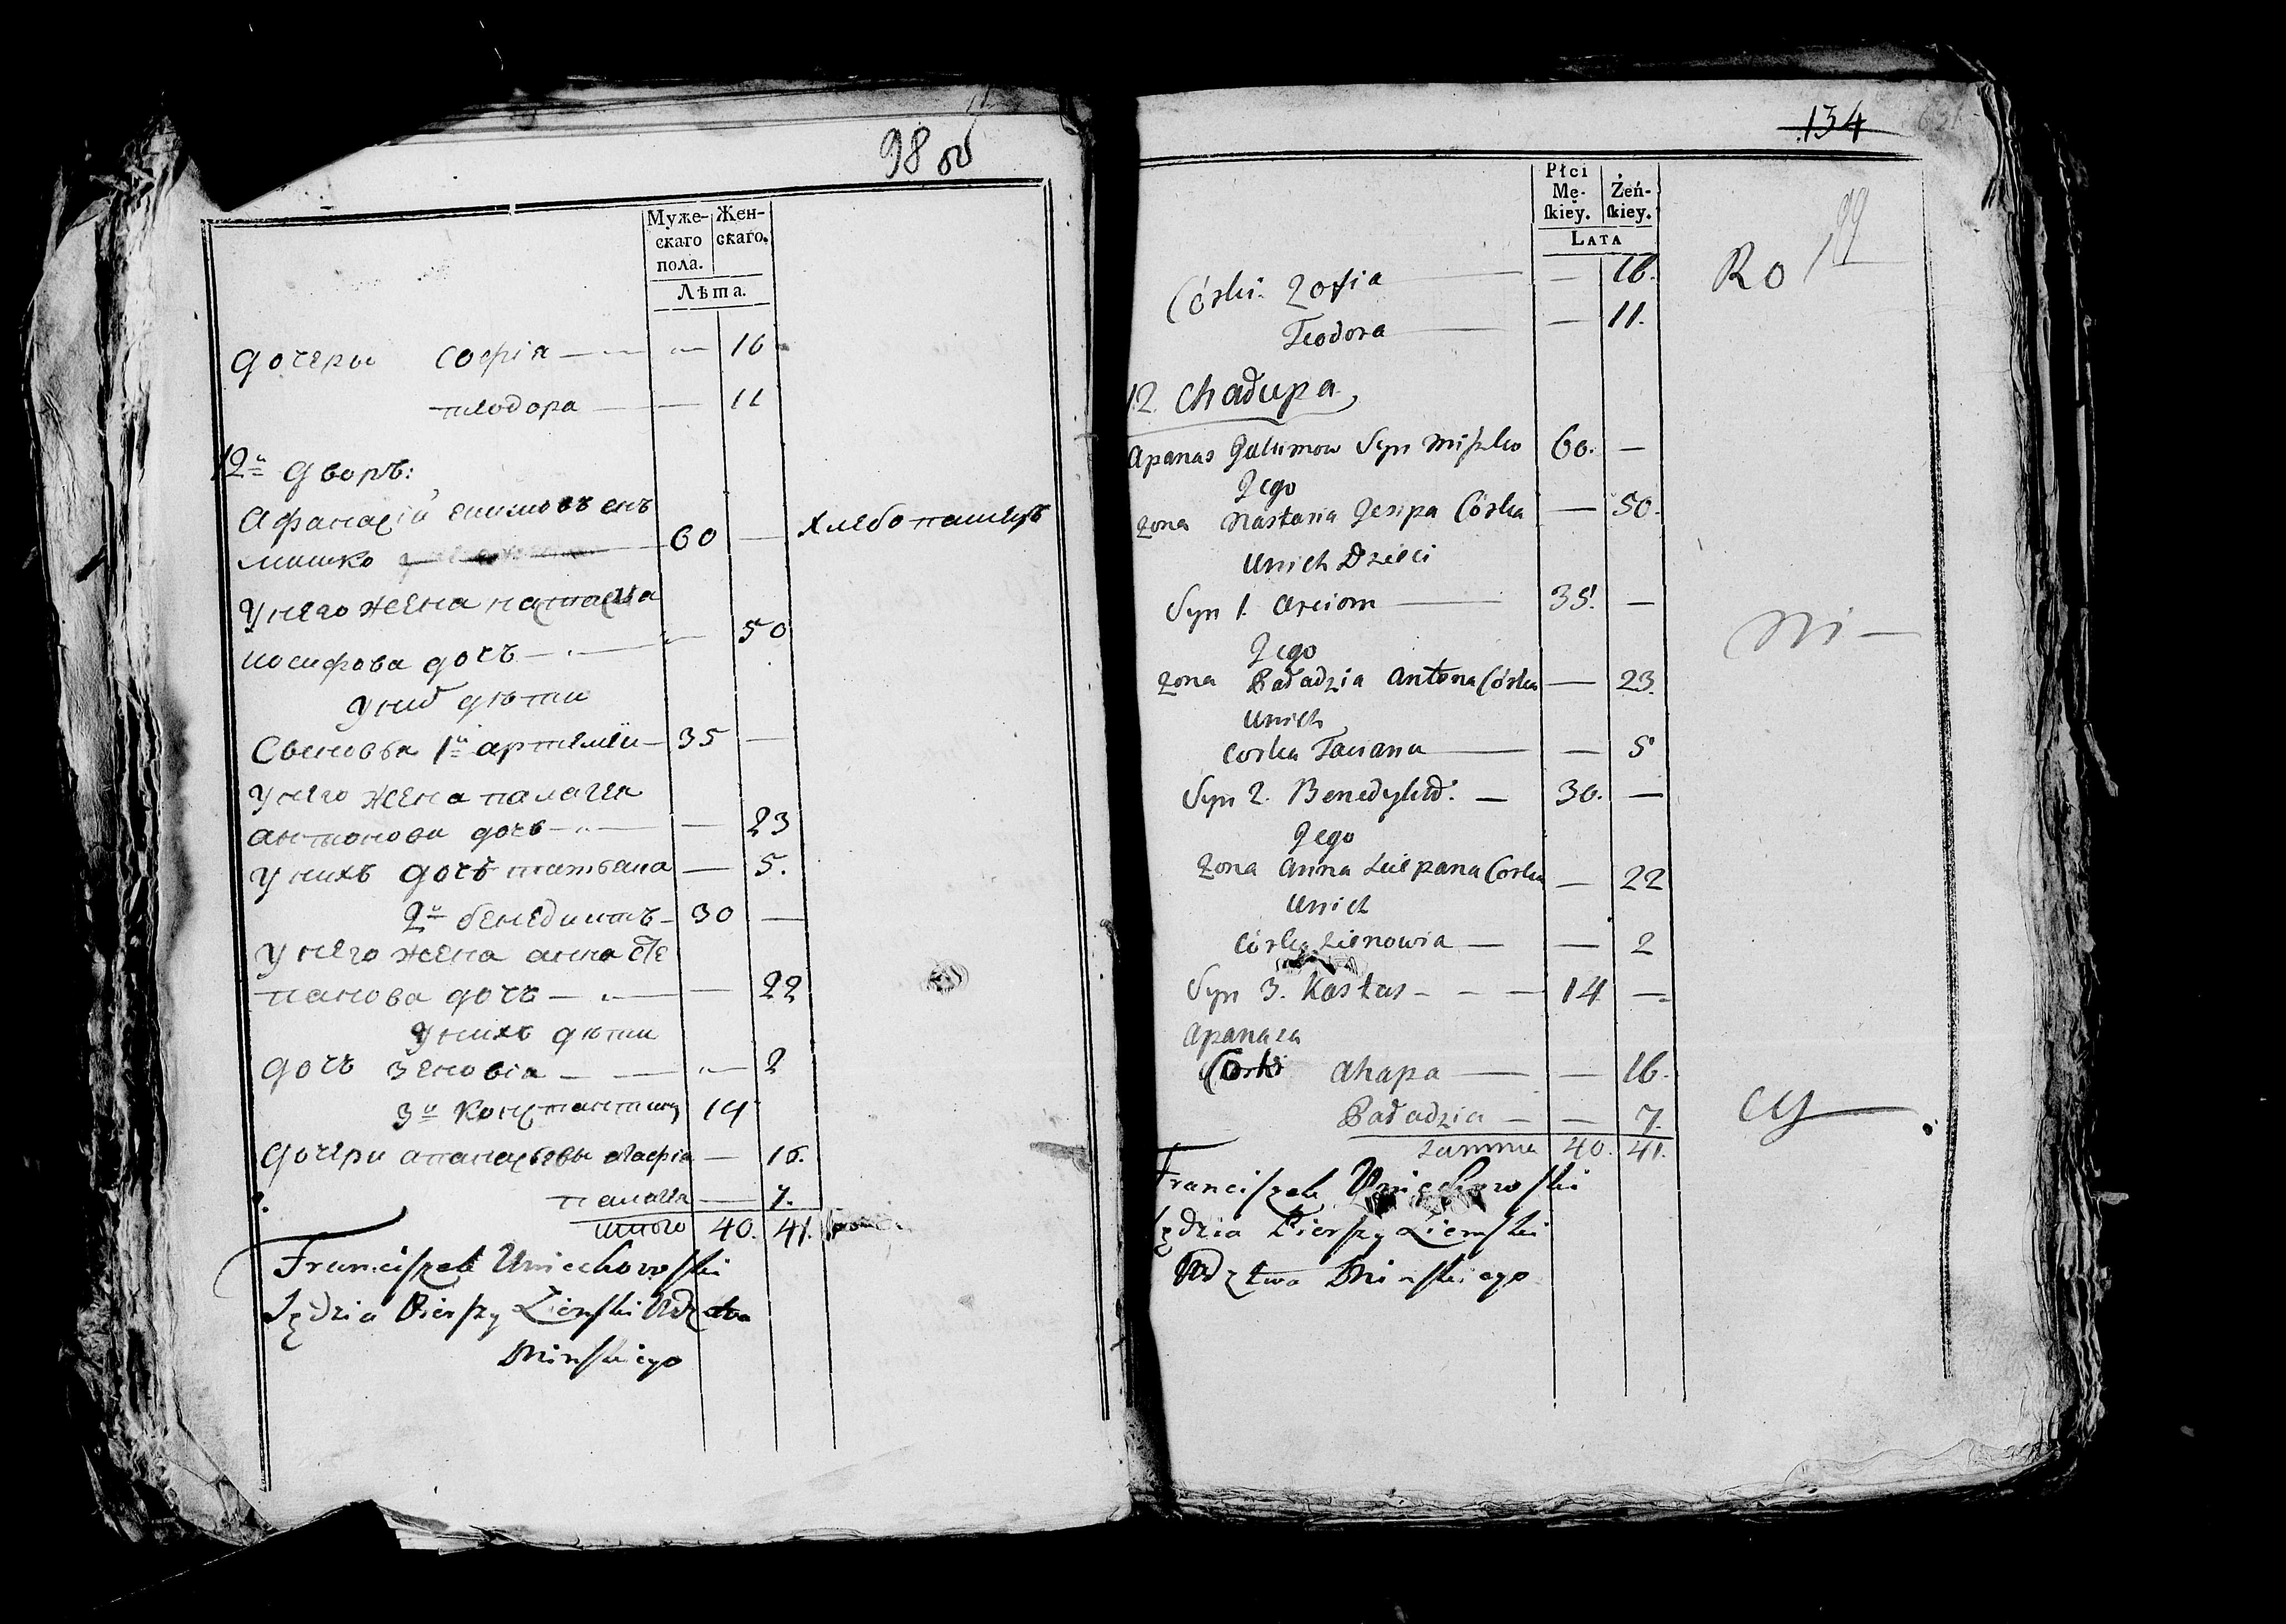 98 об
Муже-
скаго
пола.
Жен-
скаго.
Лѣта.
дочеры софія — — 16
теодора — — 11
12й дворъ:
Афанасій екимовъ снъ
мишко 60 — хлебопашецъ
у него жена настасиа
иосифова дочъ — — 50
у них дѣти
Сыновья 1й артемей — 35 —
у него жена палагея
антонова дочь — — 23
у нихъ дочь татьяна — 5.
2й бенедиктъ — 30 —
у него жена анна сте
панова дочъ — — 22
у нихъ дѣти
дочъ зеновіа — — 2
3й константинъ 14
дочери апанасьевы агафіа — 16.
палагея — 7.
итого 40. 41.
Franciszek Uniechowski
Sędzia Pierszy Ziemski Wdztwa
Minskiego
134
99
Płci
Mę-
skiey.
Żeń-
skiey.
LATA
Córki Zofia — — 16.
Teodora — — 11.
Ro
12. Chałupa
Apanas Jakimow Syn Miszko 60. —
Jego
żona Nastazia Jesipa Córka — 50.
U nich Dzieci
Syn 1. Arciom — 35. —
Ni —
Jego
żona Paładzia Antona Córka — 23.
U nich
Corka Taciana — — 5
Syn 2. Benedykt. — 30. —
Jego
Zona Anna Sciepana Corka — 22
U nich
Córka Zienowia — — 2
Syn 3. Kastus - - — 14 —
Apanaza
Corki Ahapa — — 16.
cy —
Paładzia — — 7.
Summa 40. 41.
Franciszek Uniechowski
Sędzia Pierszy Ziemski
Wdztwa Minskiego